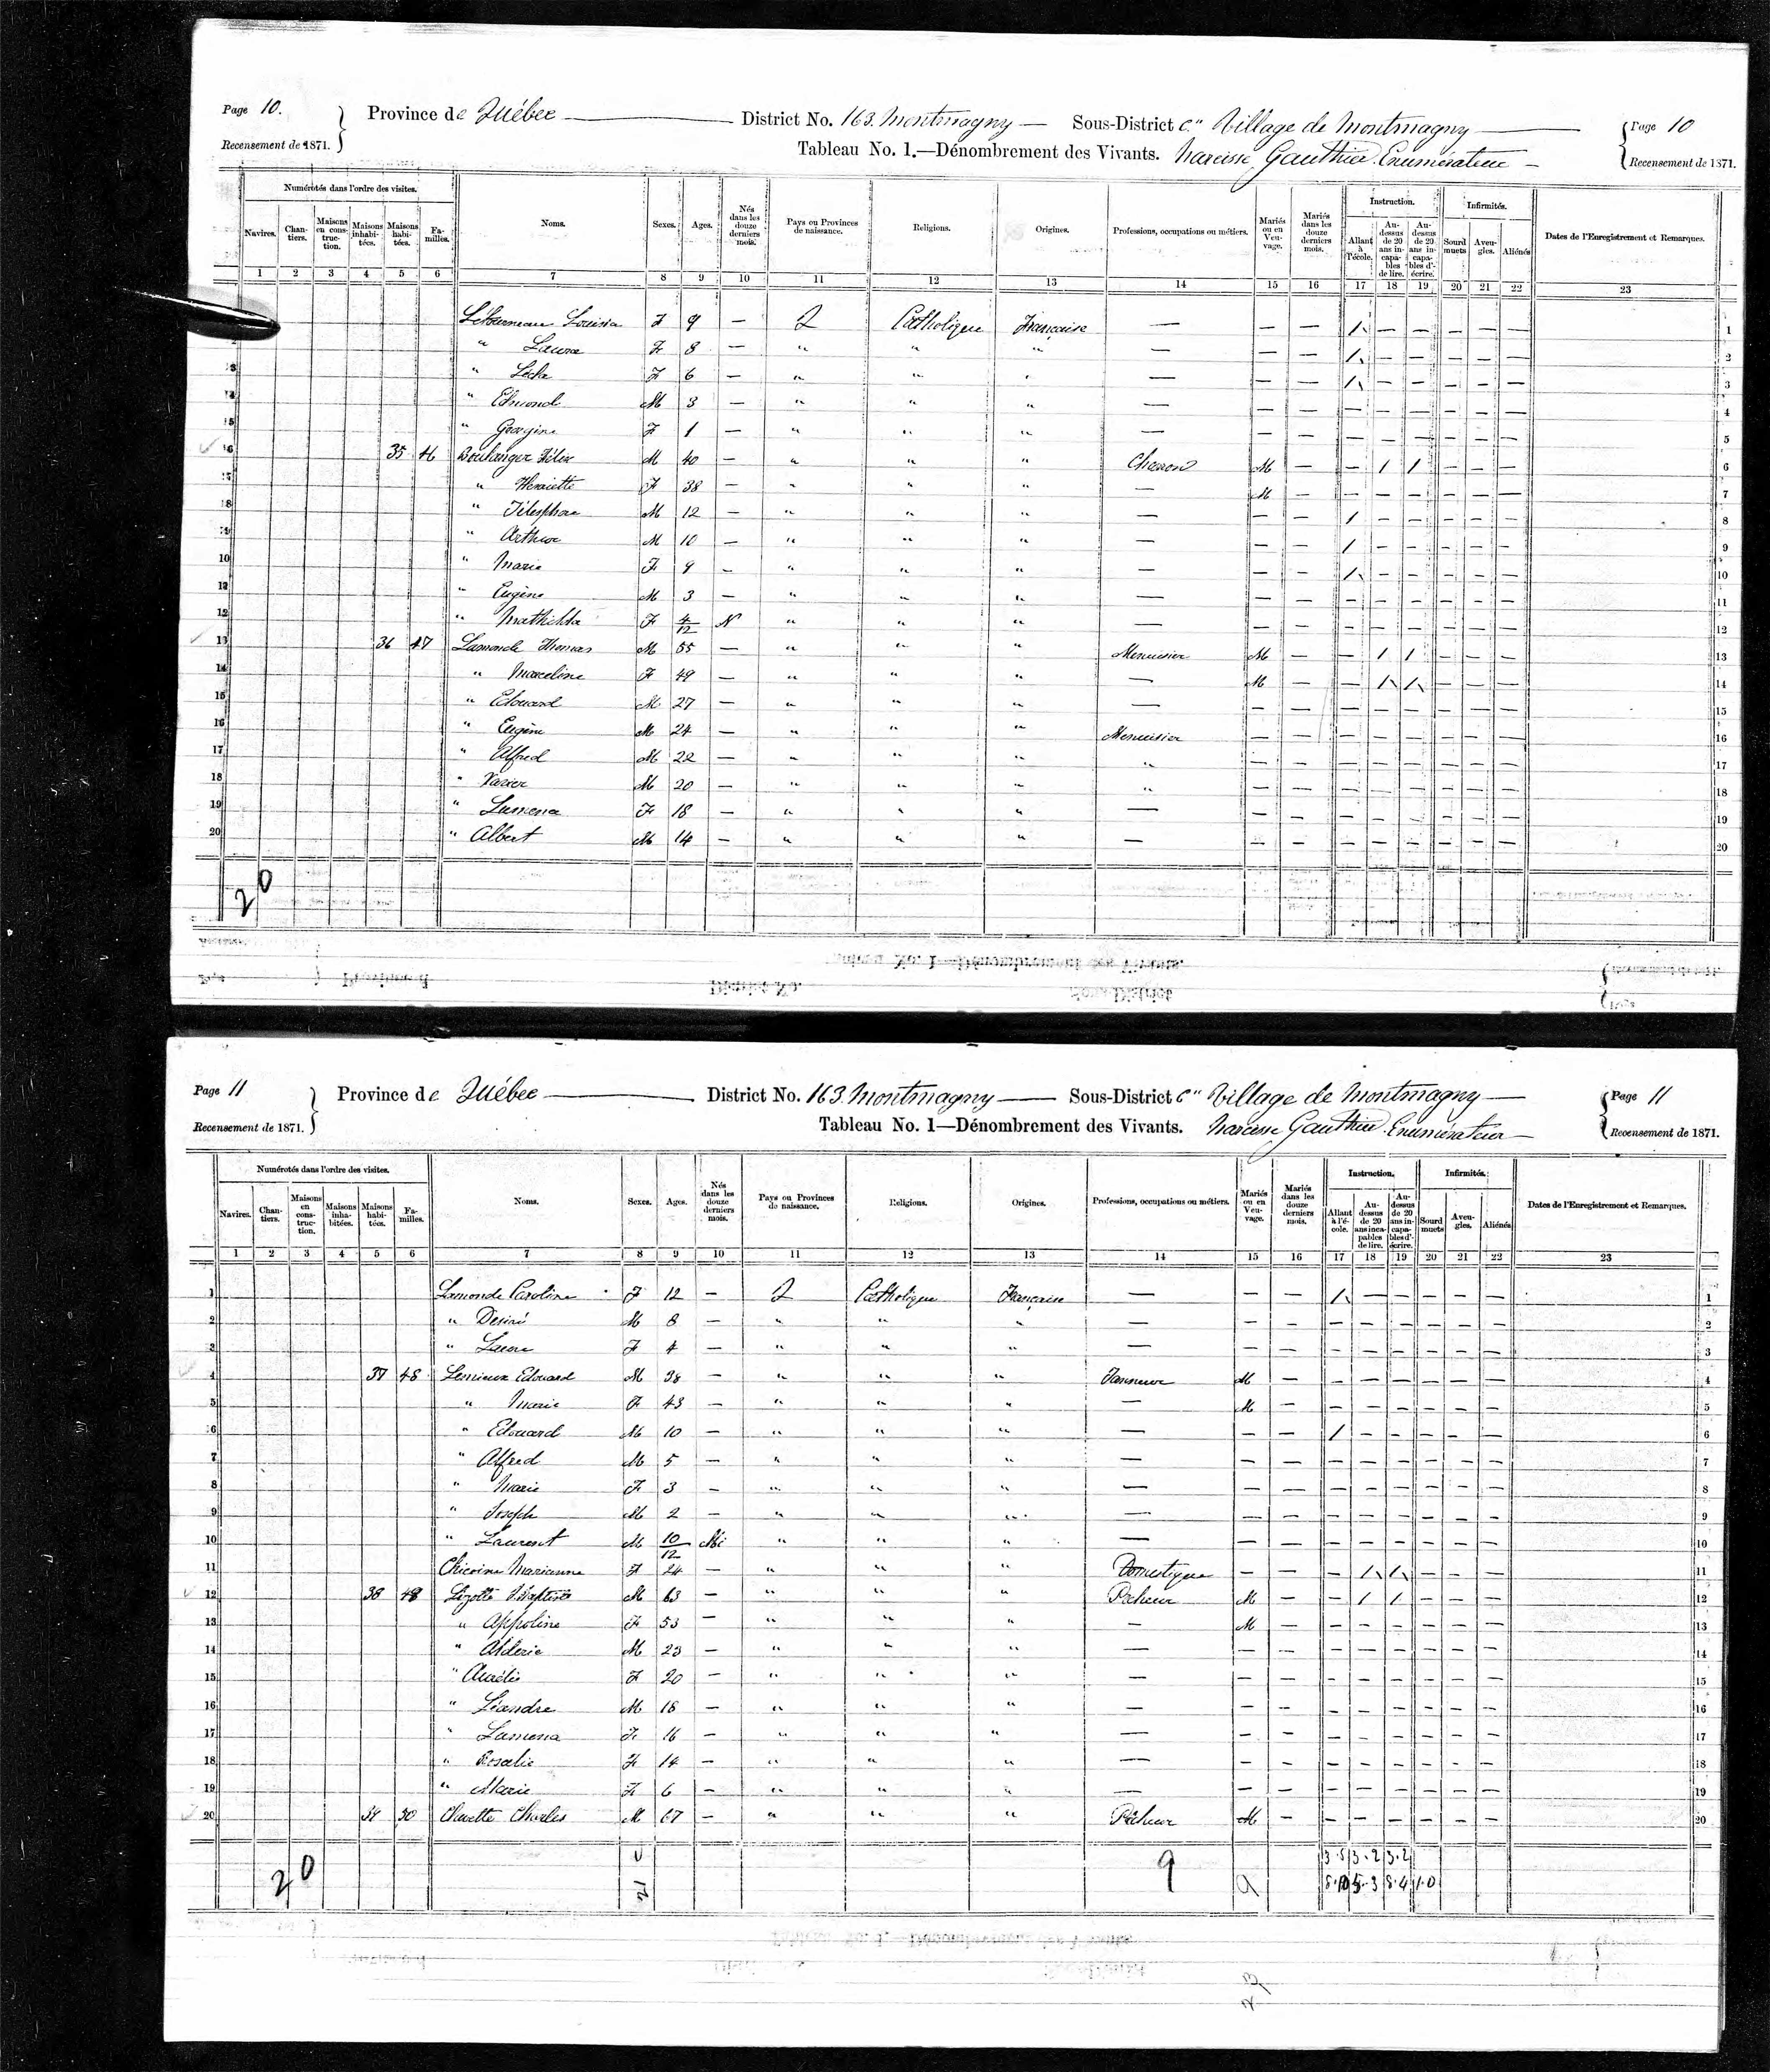 Page 10.
Recensement de 1871.
Province de Québec
District No. 163. Montmagny
Sous-District C" Village de Montmagny
Page 10
Recensement de 1871.
Tableau No. 1.—Dénombrement des Vivants. Narcisse Gauthier Enumérateur
Numérotés dans l'ordre des visites. Instruction. Infirmités.
Navires. Chantiers. Maisons en construction. Maisons inhabitées. Maisons habitées. Familles. Noms. Sexes. Ages. Nés dans les douze derniers mois. Pays ou Provinces de naissance. Religions. Origines. Professions, occupations ou métiers. Mariés ou en Veuvage. Mariés dans les douze derniers mois. Allant à l'école. Au-dessus de 20 ans incapables de lire. Au-dessus de 20 ans incapables d'écrire. Sourd muets Aveugles. Aliénés Dates de l'Enregistrement et Remarques.
1 2 3 4 5 6 7 8 9 10 11 12 13 14 15 16 17 18 19 20 21 22 23
Létourneau Louisia F 9 — Q Catholique Française — — — 1 — — — — — 1
2 " Laura F 8 — " " " — — — 1 — — — — — 2
3 " F 6 — " " " — — — 1 — — — — — 3
4 " Edmond M 3 — " " " — — — — — — — — — 4
5 " Georgina F 1 — " " " — — — — — — — — — 5
6 35 46 Boulanger Félix M 40 — " " " Charron M — — 1 1 — — — 6
7 " Henriette F 38 — " " " — M — — — — — — — 7
8 " Télesphore M 12 — " " " — — — 1 — — — — — 8
9 " Arthur M 10 — " " " — — — 1 — — — — — 9
10 " Marie F 9 — " " " — — — 1 — — — — — 10
" Eugène M 3 — " " " — — — — — — — — — 11
12 " Mathilda F 4/12 N " " " — — — — — — — — — 12
13 36 47 Lamonde Thomas M 55 — " " " Menuisier M — — 1 1 — — — 13
14 " Marceline F 49 — " " " — M — — 1 1 — — — 14
15 " Edouard M 27 — " " " — — — — — — — — — 15
16 " Eugène M 24 — " " " Menuisier — — — — — — — — 16
17 " Alfred M 22 — " " " " — — — — — — — — 17
18 " Xavier M 20 — " " " " — — — — — — — — 18
19 " Lumena F 18 — " " " — — — — — — — — — 19
20 " Albert M 14 — " " " — — — — — — — — — 20
20
Page 11
Recensement de 1871.
Province de Québec
District No. 163. Montmagny
Sous-District C" Village de Montmagny
Page 11
Recensement de 1871.
Tableau No. 1—Dénombrement des Vivants. Narcisse Gauthier Enumérateur
Numérotés dans l'ordre des visites. Instruction. Infirmités.
Navires. Chantiers. Maisons en construction. Maisons inhabitées. Maisons habitées. Familles. Noms. Sexes. Ages. Nés dans les douze derniers mois. Pays ou Provinces de naissance. Religions. Origines. Professions, occupations ou métiers. Mariés ou en Veuvage. Mariés dans les douze derniers mois. Allant à l'école. Au-dessus de 20 ans incapables de lire. Au-dessus de 20 ans incapables d'écrire. Sourd muets Aveugles. Aliénés Dates de l'Enregistrement et Remarques.
1 2 3 4 5 6 7 8 9 10 11 12 13 14 15 16 17 18 19 20 21 22 23
1 Lamonde Caroline F 12 — Q Catholique Française — — — 1 — — — — — 1
2 " Desiré M 8 — " " " — — — — — — — — — 2
3 " Laura F 4 — " " " — — — — — — — — — 3
4 37 48 Lemieux Edouard M 38 — " " " Tanneur M — — — — — — — 4
5 " Marie F 43 — " " " — M — — — — — — — 5
6 " Edouard M 10 — " " " — — — 1 — — — — — 6
7 " Alfred M 5 — " " " — — — — — — — — — 7
8 " Marie F 3 — " " " — — — — — — — — — 8
9 " Joseph M 2 — " " " — — — — — — — — — 9
10 " Laurent M 10/12 Mi " " " — — — — — — — — — 10
11 Chicoine Marianne F 24 — " " " Domestique — — — 1 1 — — — 11
12 38 48 Lizotte J. Baptiste M 63 — " " " Pêcheur M — — 1 1 — — — 12
13 " Appoline F 53 — " " " — M — — — — — — — 13
14 " Alderic M 23 — " " " — — — — — — — — — 14
15 " Aurélie F 20 — " " " — — — — — — — — — 15
16 " Léandre M 18 — " " " — — — — — — — — — 16
17 " Lumena F 16 — " " " — — — — — — — — — 17
18 " Rosalie F 14 — " " " — — — — — — — — — 18
19 " Marie F 6 — " " " — — — — — — — — — 19
20 39 50 Charles M 67 — " " " Pêcheur M — — — — — — — 20
20 9 9 3.5 3.2 3.2
5.3 8.4 1.0